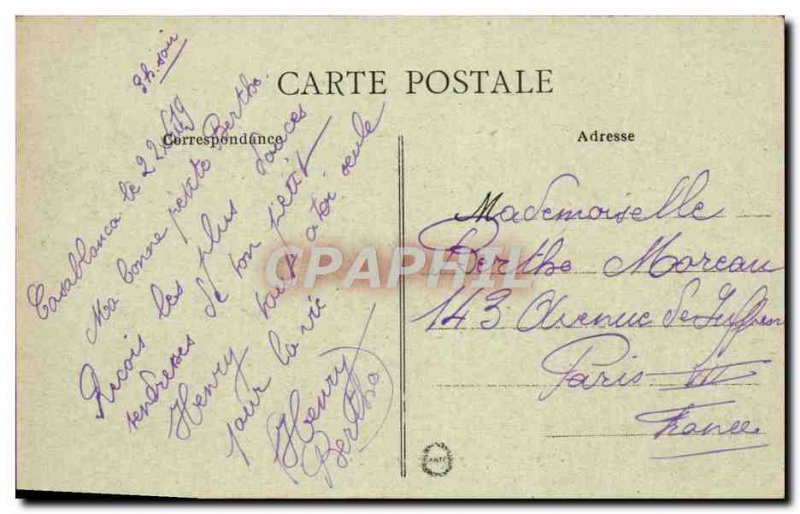 CARTE POSTALE
Correspondance
Adresse
9h. soir
Casablanca le 22/6/19
Ma bonne petite Berthe
Reçois les plus douces
tendresses de ton petit
Henry tout a toi seule
pour la vie
Henry
Berthe
Mademoiselle
Berthe Moreau
143 Avenue de Suffren
Paris
France
CPAPHIL